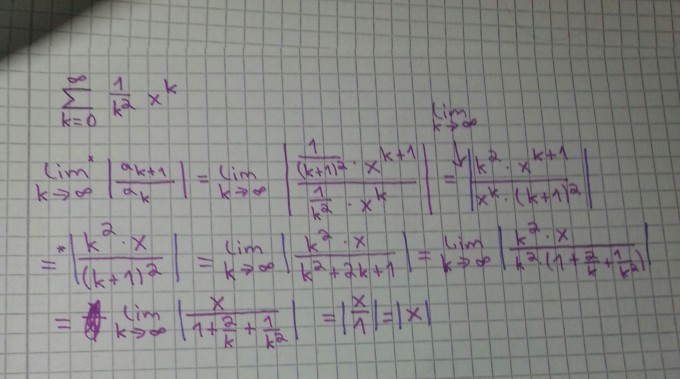 ∞
∑ 1/k² x^k
k=0
lim* k→∞ |a_{k+1}/a_k| = lim k→∞ |(1/(k+1)² · x^{k+1})/(1/k² · x^k)| = lim k→∞ ↓ |(k² · x^{k+1})/(x^k · (k+1)²)|
=* |(k² · x)/(k+1)²| = lim k→∞ |(k² · x)/(k²+2k+1)| = lim k→∞ |(k² · x)/(k²(1+2/k+1/k²))|
= lim k→∞ |x/(1+2/k+1/k²)| = |x/1| = |x|